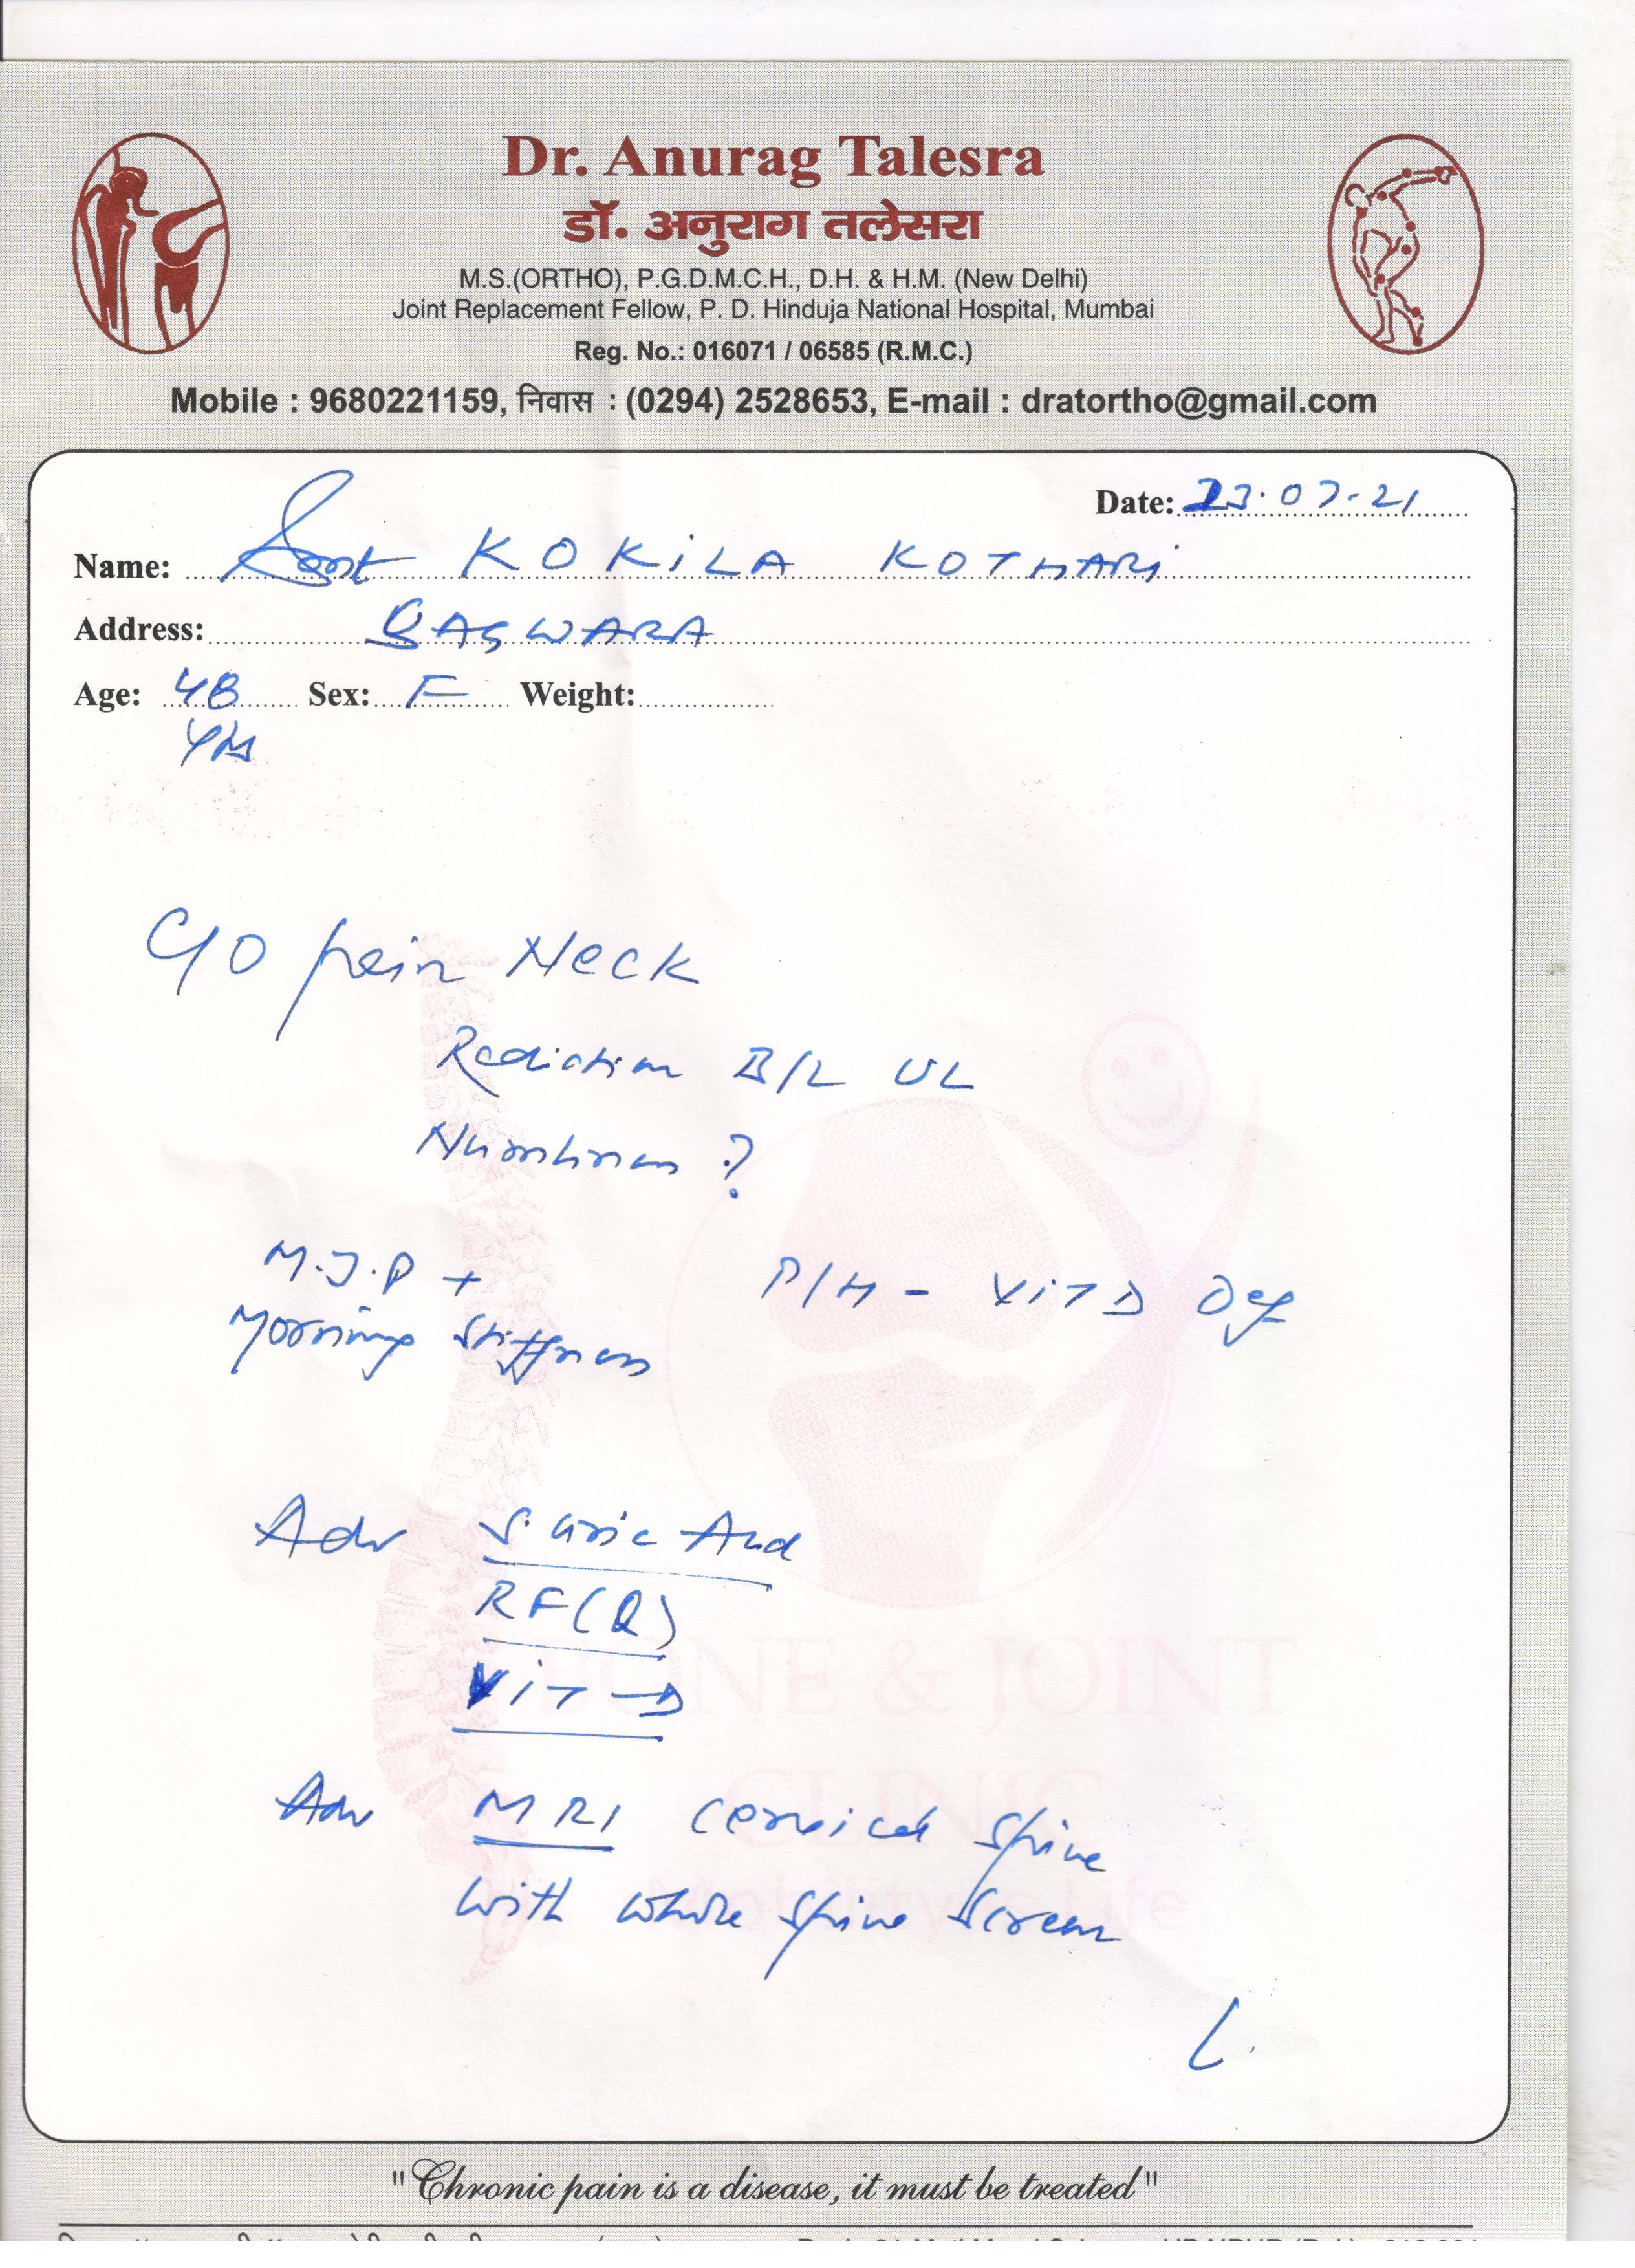 Dr. Anurag Talesra
डॉ. अनुराग तलेसरा
M.S.(ORTHO), P.G.D.M.C.H., D.H. & H.M. (New Delhi)
Joint Replacement Fellow, P. D. Hinduja National Hospital, Mumbai
Reg. No.: 016071 / 06585 (R.M.C.)
Mobile : 9680221159, निवास : (0294) 2528653, E-mail : dratortho@gmail.com
Date: 23.07.21
Name: Smt KOKILA KOTHARI
Address: BAGWARA
Age: 48 Sex: F Weight:
Yrs
C/O pain Neck
Radiation B/L UL
Numbness ?
M.J.P +
P/H - VIT D Def
Morning Stiffness
Adv S. Uric Acid
RF(Q)
VIT D
Adv MRI Cervical Spine
with whole Spine Screen
BONE & JOINT
CLINIC
"Chronic pain is a disease, it must be treated"